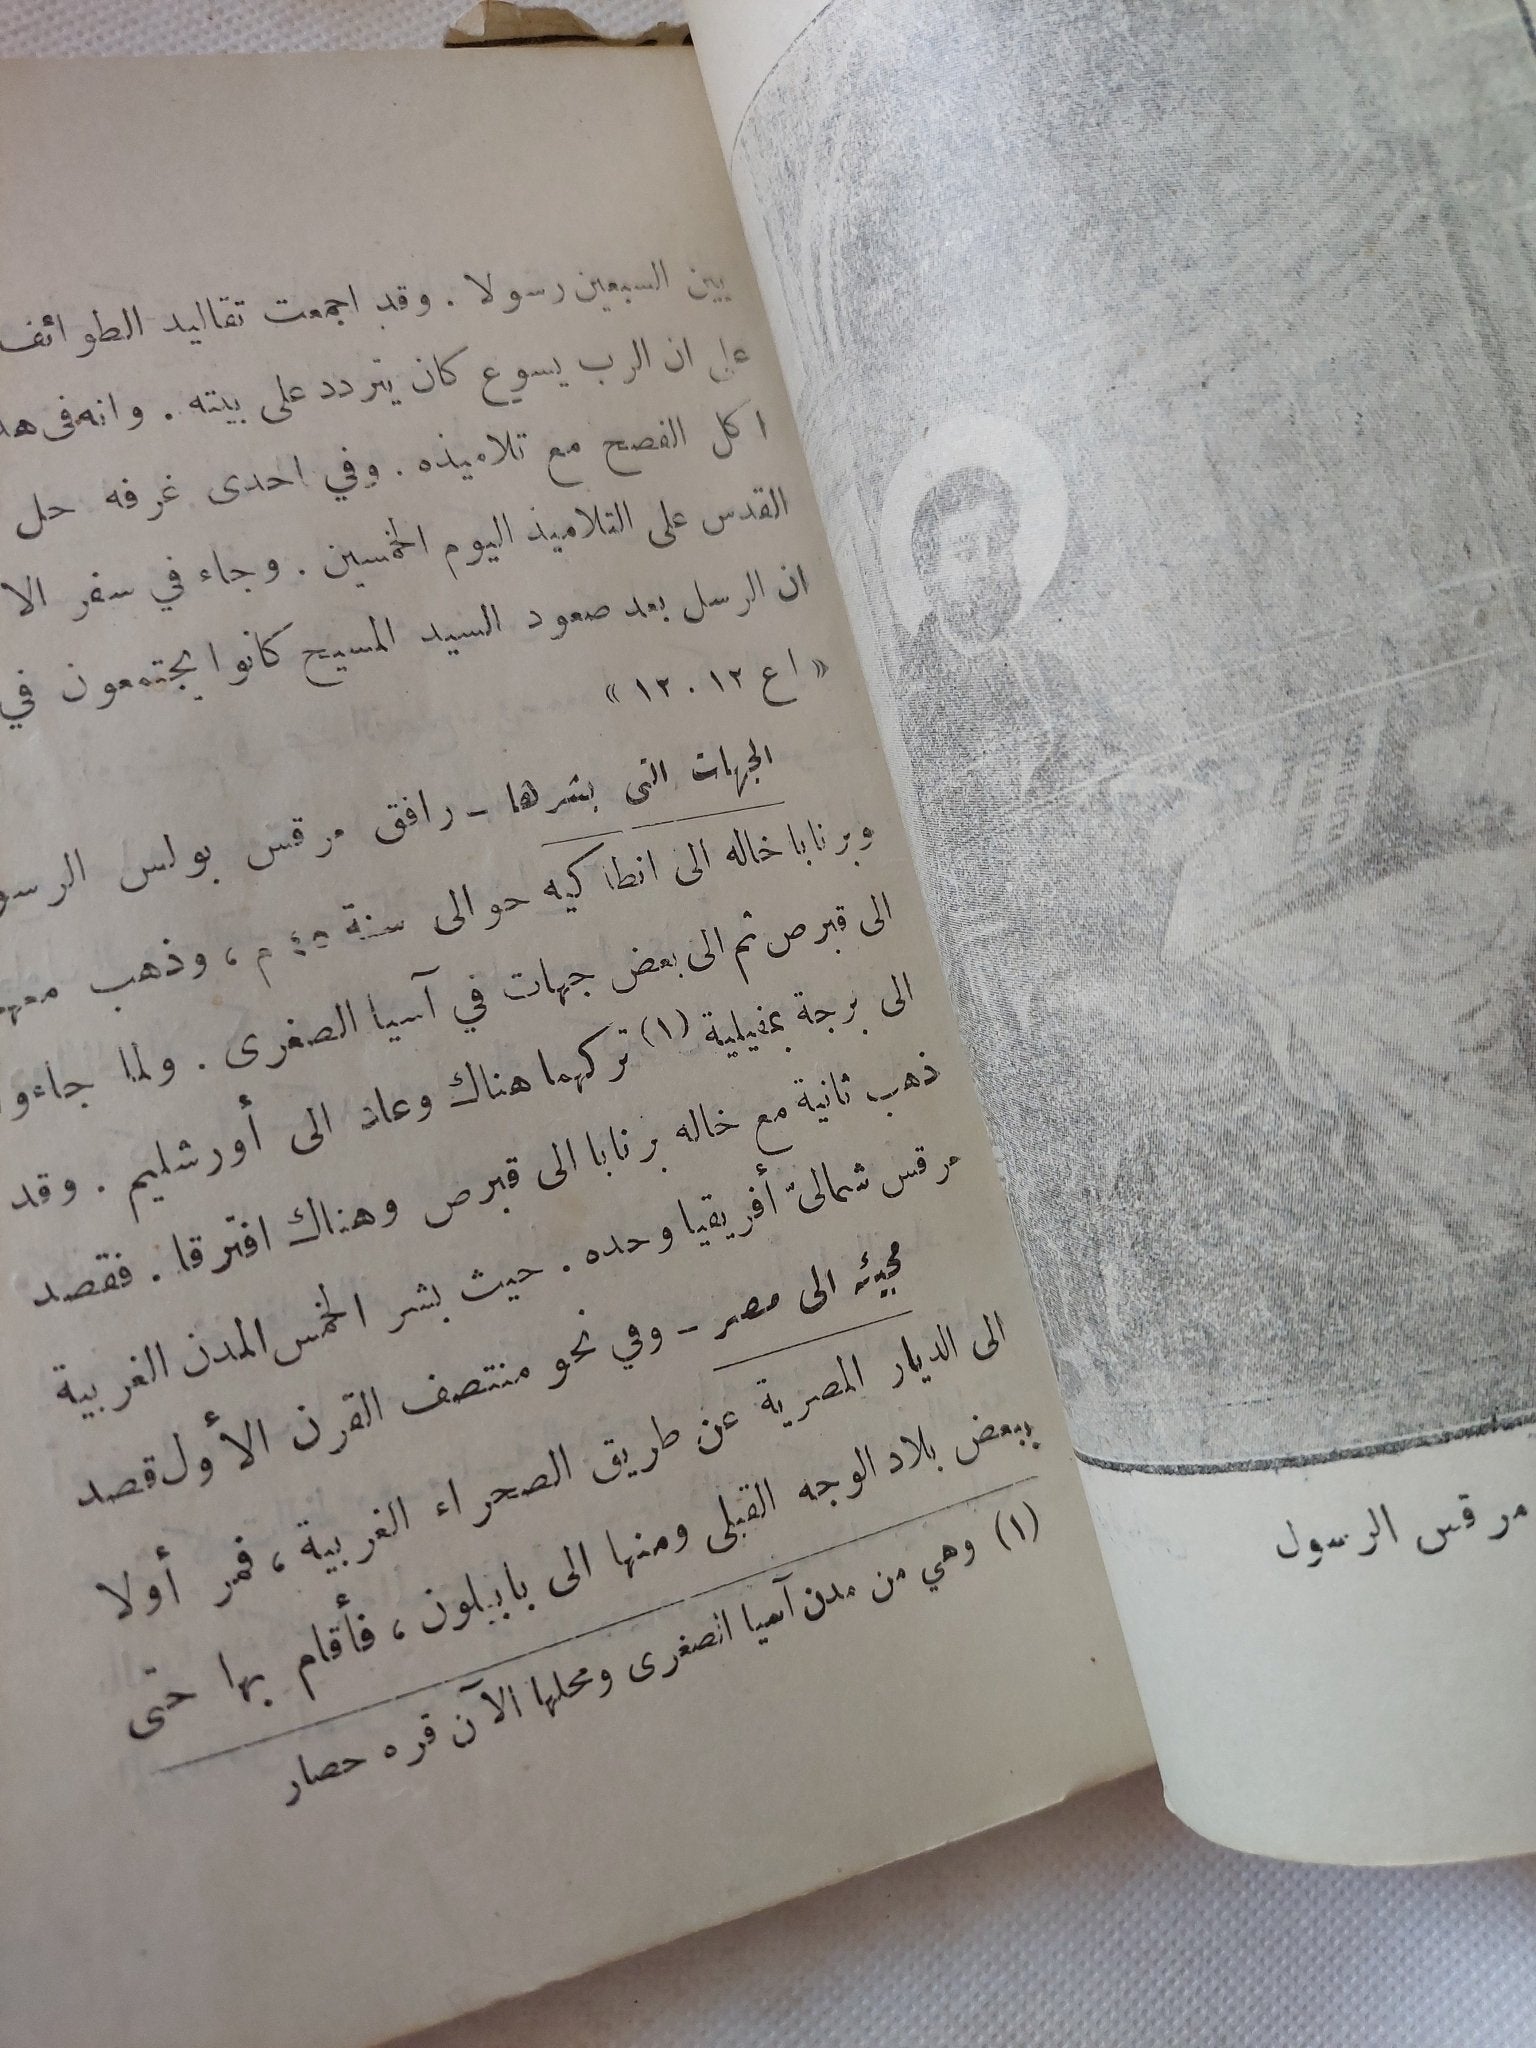 مرقس الرسول
بين السبعين رسولا . وقد اجمعت تقاليد الطوائف
على ان الرب يسوع كان يتردد على بيته . وانه فى
اكل الفصح مع تلاميذه . وفي احدى غرفه حل
القدس على التلاميذ اليوم الخمسين . وجاء في سفر
ان الرسل بعد صعود السيد المسيح كانوا يجتمعون في
« اع ١٢ . ١٢ »
الجهات التى بشرها – رافق مرقس بولس
وبرنابا خاله الى انطاكيه حوالى سنة ٤٥ م ، وذهب
الى قبرص ثم الى بعض جهات في آسيا الصغرى . ولما
الى برجة بمفيلية (١) تركهما هناك وعاد الى أورشليم . وقد
ذهب ثانية مع خاله برنابا الى قبرص وهناك افترقا . فقصد
مرقس شمالىّ أفريقيا وحده . حيث بشر الخمس المدن الغربية
مجيئه الى مصر – وفي نحو منتصف القرن الأول قصد
الى الديار المصرية عن طريق الصحراء الغربية ، فمر أولا
ببعض بلاد الوجه القبلى ومنها الى بابيلون ، فأقام بها حتى
(١) وهي من مدن آسيا الصغرى ومحلها الآن قره حصار